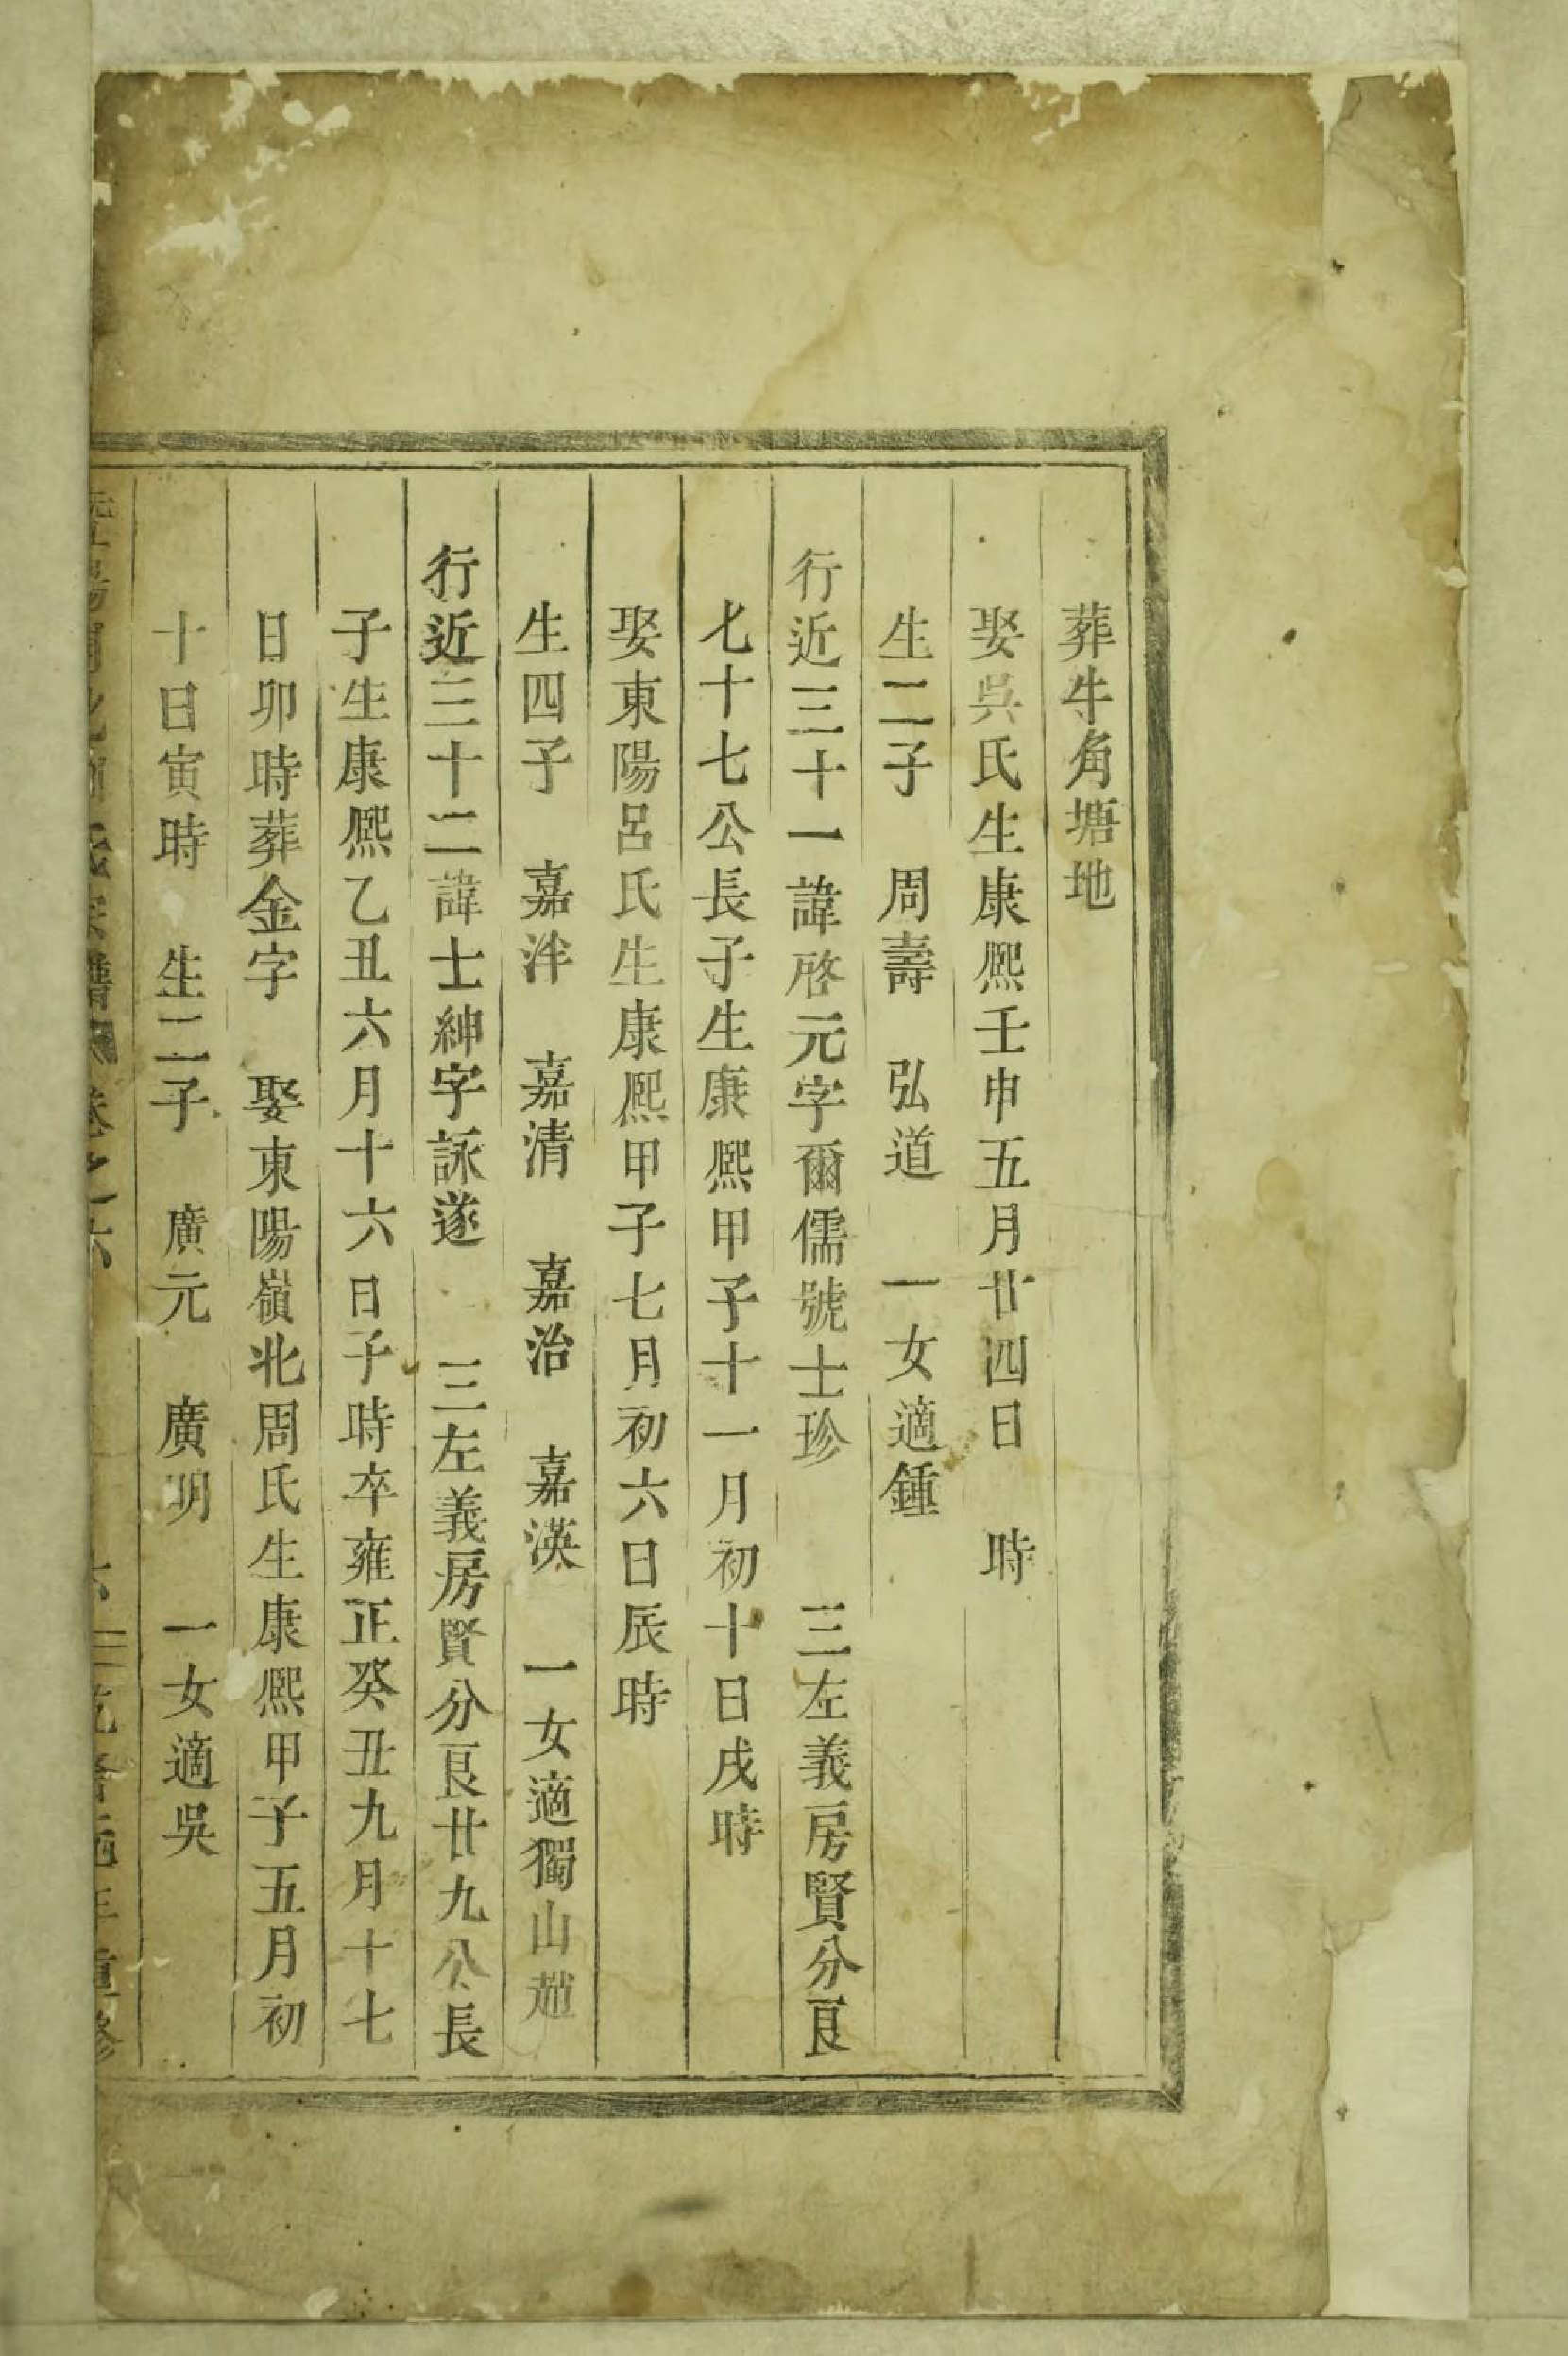 葬牛角塘地
娶吳氏生康熙壬申五月廿四日　時
生二子　周壽　弘道　一女適鍾
行近三十一諱啓元字爾儒號士珍　三左義房賢分良
七十七公長子生康熙甲子十一月初十日戌時
娶東陽呂氏生康熙甲子七月初六日辰時
生四子　嘉泮　嘉清　嘉治　嘉渶　一女適獨山趙
行近三十二諱士紳字詠遂　三左義房賢分良廿九公長
子生康熙乙丑六月十六日子時卒雍正癸丑九月十七
日卯時葬金字　娶東陽嶺北周氏生康熙甲子五月初
十日寅時　生二子　廣元　廣明　一女適吳
氏宗譜　卷之六　重修